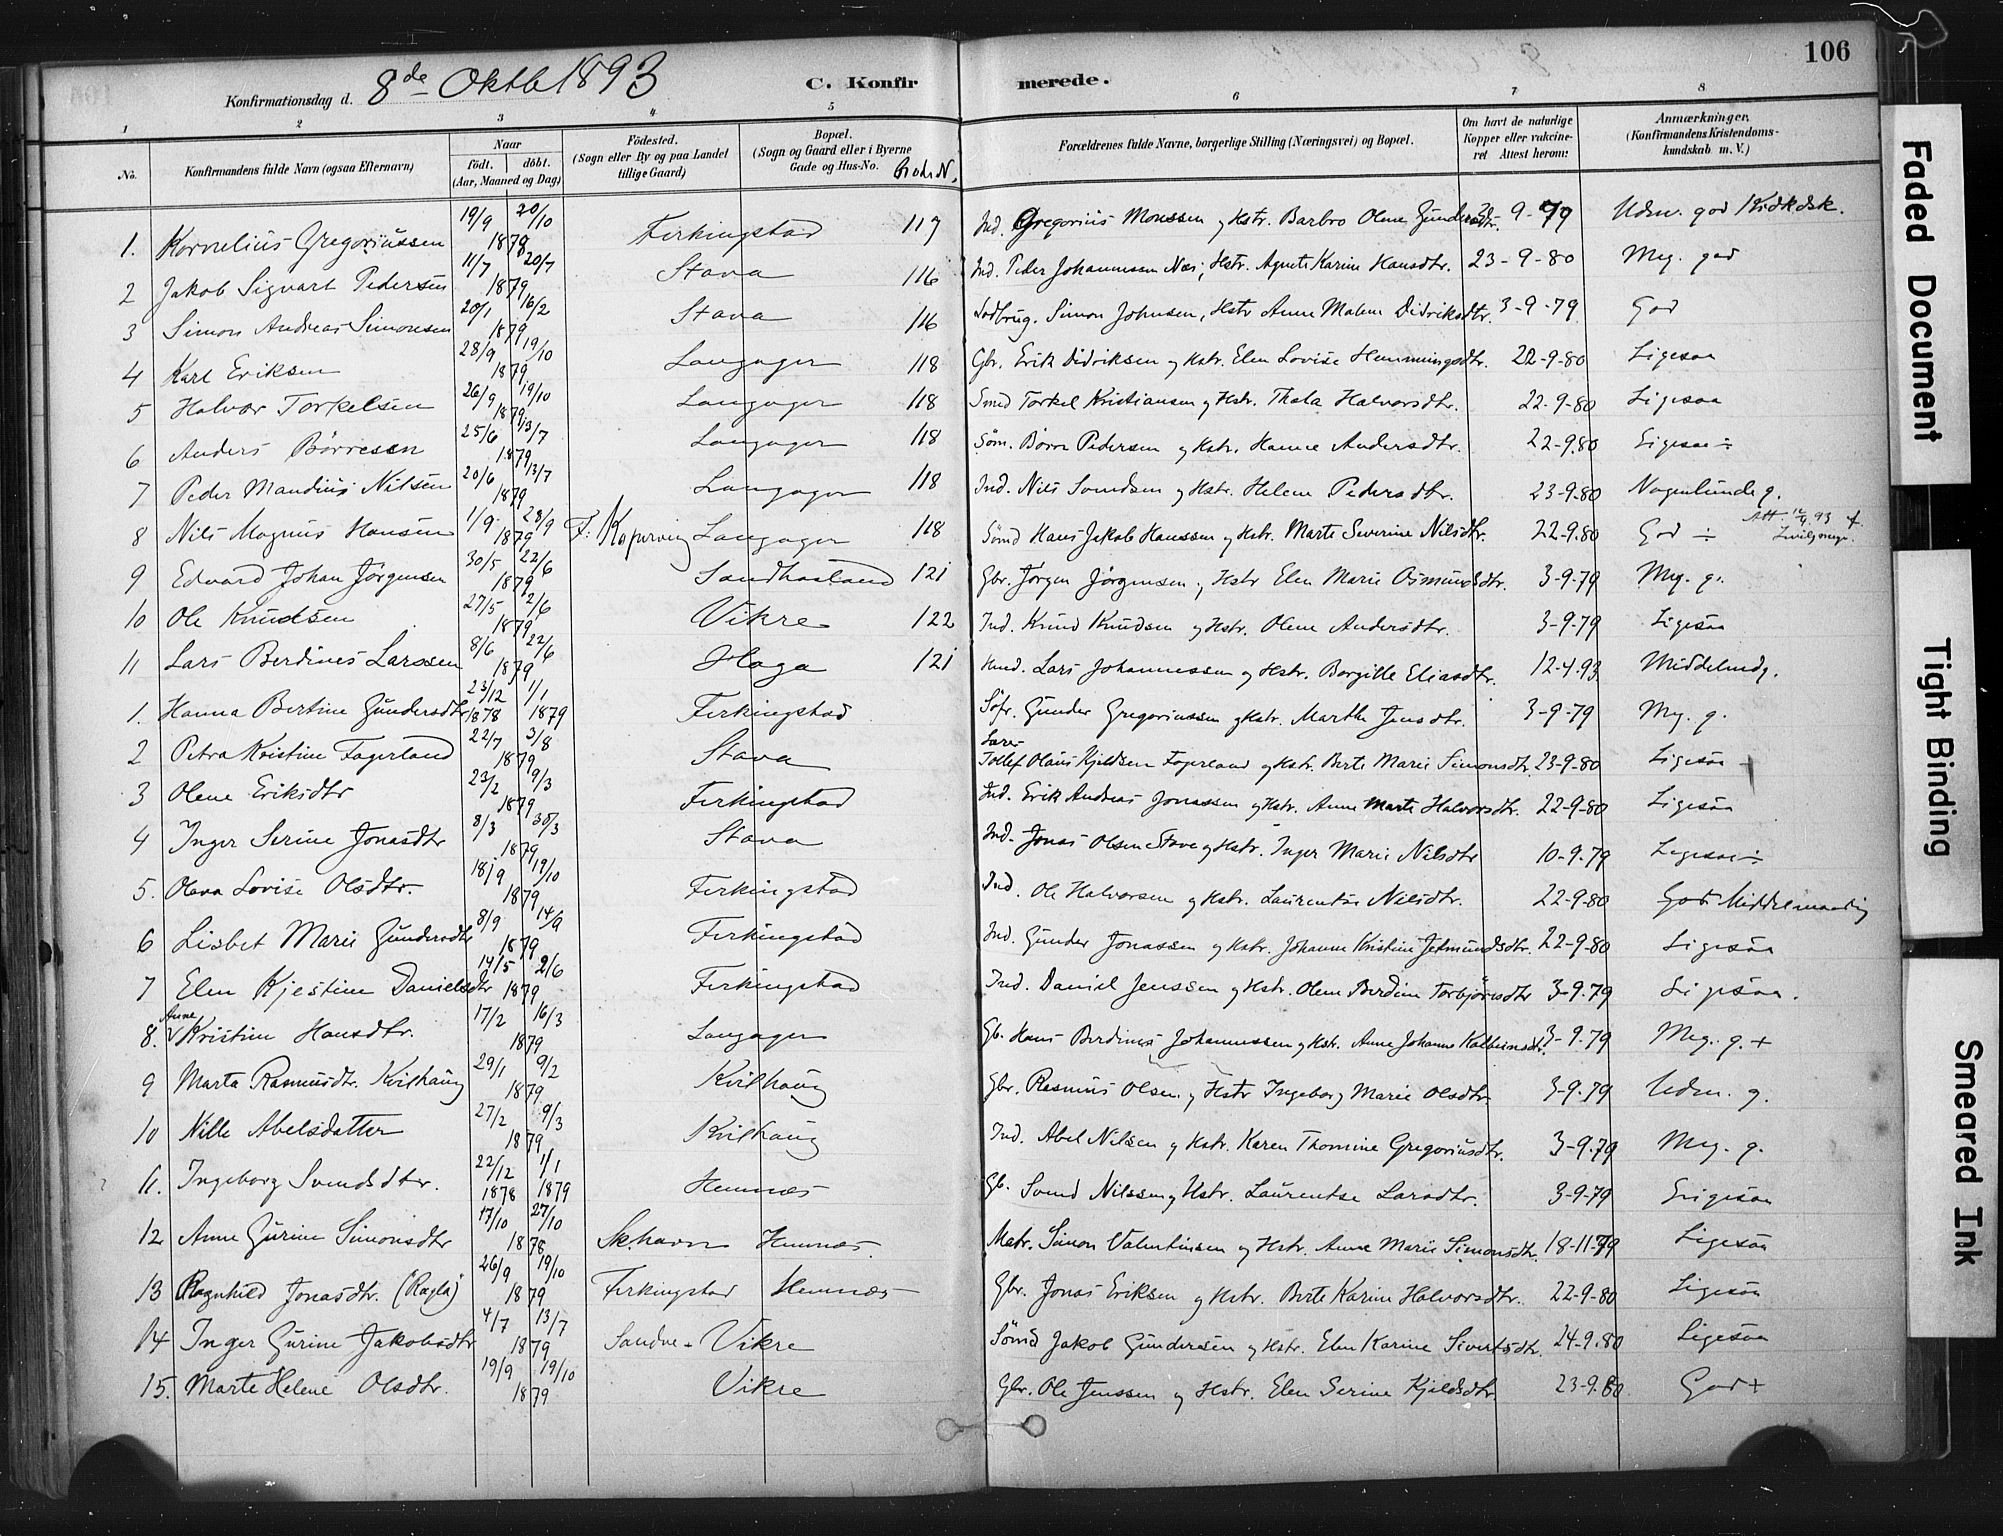 106
Konfirmationsdag d. 8de Oktb 1893 C. Konfirmerede.
1 2 3 4 5 6 7 8
No. Konfirmandens fulde Navn (ogsaa Efternavn) Naar födt. döbt. (Aar, Maaned og Dag) Födested. (Sogn eller By og paa Landet tillige Gaard) Bopæl. (Sogn og Gaard eller i Byerne Gade og Hus-No. Forældrenes fulde Navne, borgerlige Stilling (Næringsvei) og Bopæl. Om havt de naturlige Kopper eller vakcineret Attest herom: Anmærkninger, (Konfirmandens Kristendomskundskab m. V.)
1. Kornelius Gregoriussen 19/9 20/10 1879 Ferkingstad 117 Ind. Gregorius Monssen og Hstr. Barbro Olene Gundersdtr. 9-79 Udm. god
2 Jakob Sigvart Pedersen 11/7 20/7 1879 Stava 116 Ind. Peder Johannessen Næs, Hstr. Agnete Karine Hansdtr. 23-9-80 Meg. god
3 Simon Andreas Simonsen 20/1 16/2 1879 Stava 116 Simon Johnsen, Hstr Anne Malene Didriksdtr. 3-9-79 God
4 Karl Eriksen 28/9 19/10 1879 Langager 118 Gbr. Erik Didriksen og Hstr. Elen Lovise Hemmingsdtr. 22-9-80 Ligesaa
5 Halvor Torkelsen 26/9 19/10 1879 Langager 118 Smed Torkel Kristiansen og Hstr. Thala Halvorsdtr. 22-9-80 Ligesaa
6 Anders Börresen 25/6 13/7 1879 Langager 118 Søm. Börre Pedersen og Hstr. Hanne Andersdtr. 22-9.80 Ligesaa ÷
7 Peder Mandius Nilsen 20/6 13/7 1879 Langager 118 Ind. Nils Svendsen og Hstr. Helene Pedersdtr. 23-9-80 Nogenlunde g.
8 Nils Magnus Hansen 1/9 28/9 1879 F: Kopervig Langager 118 Sømd Hans Jakob Hanssen og Hstr. Marte Severine Nilsdtr. 22-9.80 God ÷ Att. 93
9 Edvard Johan Jörgensen 30/5 22/6 1879 Sandhaaland 121 Gbr. Jörgen Jörgensen, Hstr Elen Marie Osmundsdtr. 3-9-79 Meg. g.
10 Ole Knudsen 27/5 2/6 1879 Vikre 122 Ind. Knud Knudsen og Hstr. Olene Andersdtr. 3-9-79 Ligesaa
11 Lars Berdines Larssen 8/6 22/6 1879 Haga 121 Lars Johannessen og Hstr. Borgille Eliasdtr. 12-4.93 Middelmdg.
1. Hanna Bertine Gundersdtr 23/12 1878 1/1 1879 Ferkingstad Gunder Gregoriussen og Hstr. Marthe Jensdtr. 3-9-79 Mg. g.
2 Petra Kristine Fagerland 22/7 3/8 1879 Stava Lærer Tollef Olaus Kjeldsen Fagerland og Hstr. Berte Marie Simonsdtr. 23-9-80 Ligesaa
3 Olene Eriksdtr 23/2 9/3 1879 Ferkingstad Ind. Erik Andreas Jonassen og Hstr. Anne Marte Halvorsdtr. 22-9-80 Ligesaa
4 Inger Serine Jonasdtr 8/3 30/3 1879 Stava Ind. Jonas Olsen Stave og Hstr. Inger Marie Nilsdtr 10-9-79 Ligesaa ÷
5. Olava Lovise Olsdtr. 18/9 19/10 1879 Ferkingstad Ind. Ole Halvorsen og Hstr. Laurentse Nilsdtr. 22-9-80 God Middelmaadig
6 Lisbet Marie Gundersdtr 8/9 14/9 1879 Ferkingstad Ind. Gunder Jonassen og Hstr. Johanne Kristine Jetmundsdtr. 22-9-80 Ligesaa
7 Elen Kjestine Danielsdtr 14/5 2/6 1879 Ferkingstad Ind. Daniel Jenssen og Hstr. Olene Berdine Torbjörnsdtr 3-9-79 Ligesaa.
8. Anne Kristine Hansdtr. 17/2 16/3 1879 Langager Gb. Hans Berdines Johannessen og Hstr. Anne Johanne 3-9.79 Meg. g. +
9 Marta Rasmusdtr. Kvilhaug 29/1 9/2 1879 Kvilhaug Gbr. Rasmus Olsen og Hstr Ingeborg Marie Olsdtr. 3-9.79 Udm. g.
10 Nille Abelsdatter 27/2 9/3 1879 Kvilhaug Ind. Abel Nilsen og Hstr. Karen Thomine Gregoriusdtr. 3-9.79 Meg. g.
11. Ingeborg Svendsdter. 22/12 1878 1/1 1879 Hemnæs Gb. Svend Nilssen og Hstr. Laurentse Larsdtr. 3-9-79 Ligesaa
12 Anne Gurine Simonsdtr 17/10 27/10 1878 Sk.havn Hemnæs. Matr. Simon Valentinsen og Hstr. Anne Marie Simonsdtr. 18-11-79 Ligesaa
13 Ragnhild Jonasdtr. (Ragla) 26/9 19/10 1879 Ferkingstad Hemnæs Gbr. Jonas Eriksen og Hstr. Berte Karine Halvorsdtr. 22-9-80 Ligesaa
14 Inger Gurine Jakobsdtr 4/7 13/7 1879 Sandve - Vikre Sømd Jakob Gundersen og Hstr. Elen Karine Sivertsdtr. 24-9.80 Ligesaa
15. Marte Helene Olsdtr. 19/9 19/10 1879 Vikre Gbr. Ole Jenssen og Hstr. Elen Serine Kjeldsdtr 23-9.80 God +
Faded Document
Tight Binding
Smeared Ink